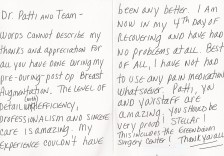 Dr. Patti and Team-
Words cannot describe my
thanks and appreciation for
all you have done during my
pre-during-post op Breast
Augmentation. The level of
Detail, (both) efficiency,
professionalism and sincere
care is amazing. My
Experience couldn't have
been any better. I am
now in my 4th day of
Recovering and have had
no problems at all. Best
of all, I have not had
to use any pain medication
whatsoever. Patti, you
and your staff are
amazing! you should be
very proud! STELLAR!
This includes the Greenbaum
Surgery Center! Thank you all